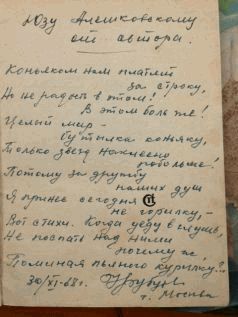 Юзу Алешковскому
от автора.
Коньяком нам платят
за строку,
Но не радость в этом!
В этом боль же!
Целый мир –
бутылка коньяку,
Только звёзд нанесено
побольше!
Потому за дружбу
наших душ
Я принес сегодня
не горилку, –
Вот стихи. Когда уеду в глушь,
Не поспать над ними
почему ж,
Поминая полного курилку?..
30/XI-68 г.
г. Москва